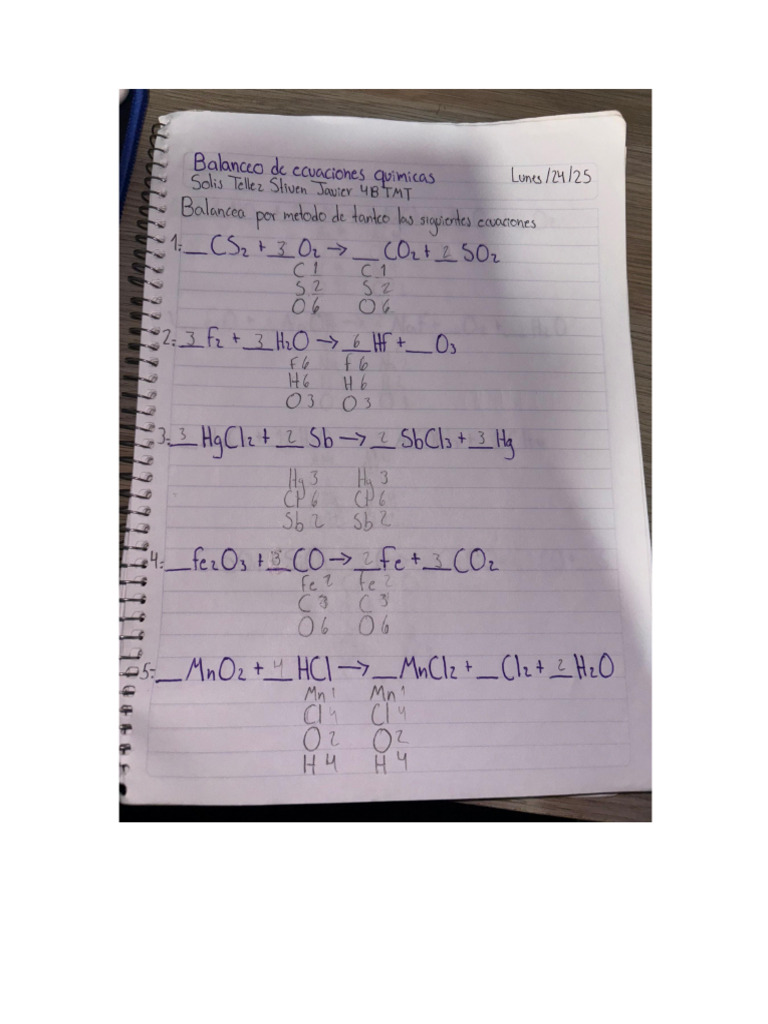 Balanceo de ecuaciones quimicas
Lunes/24/25
Solis Tellez Stiven Javier 4BTMT
Balancea por metodo de tanteo las siguientes ecuaciones
1:__CS2 + 3 O2 → __ CO2 + 2 SO2
C 1 C 1
S 2 S 2
O 6 O 6
2: 3 F2 + 3 H2O → 6 Hf + __O3
f 6 f 6
H 6 H 6
O 3 O 3
3: 3 HgCl2 + 2 Sb → 2 SbCl3 + 3 Hg
Hg 3 Hg 3
Cl 6 Cl 6
Sb 2 Sb 2
4:__fe2O3 + 3 CO → 2 fe + 3 CO2
fe 2 fe 2
C 3 C 3
O 6 O 6
5:__MnO2 + 4 HCl → __MnCl2 + __Cl2 + 2 H2O
Mn 1 Mn 1
Cl 4 Cl 4
O 2 O 2
H 4 H 4